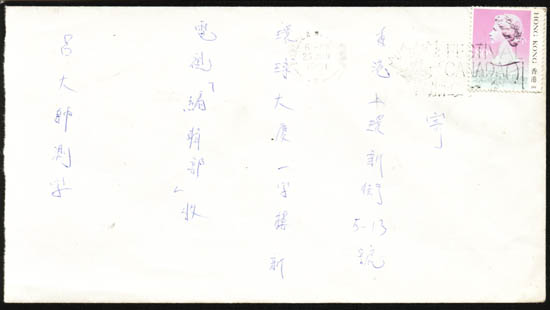 HONG KONG 香港
寄
香港上環新街5-13號
環球大廈一字樓新
電視「編輯部」收
呂大師測字